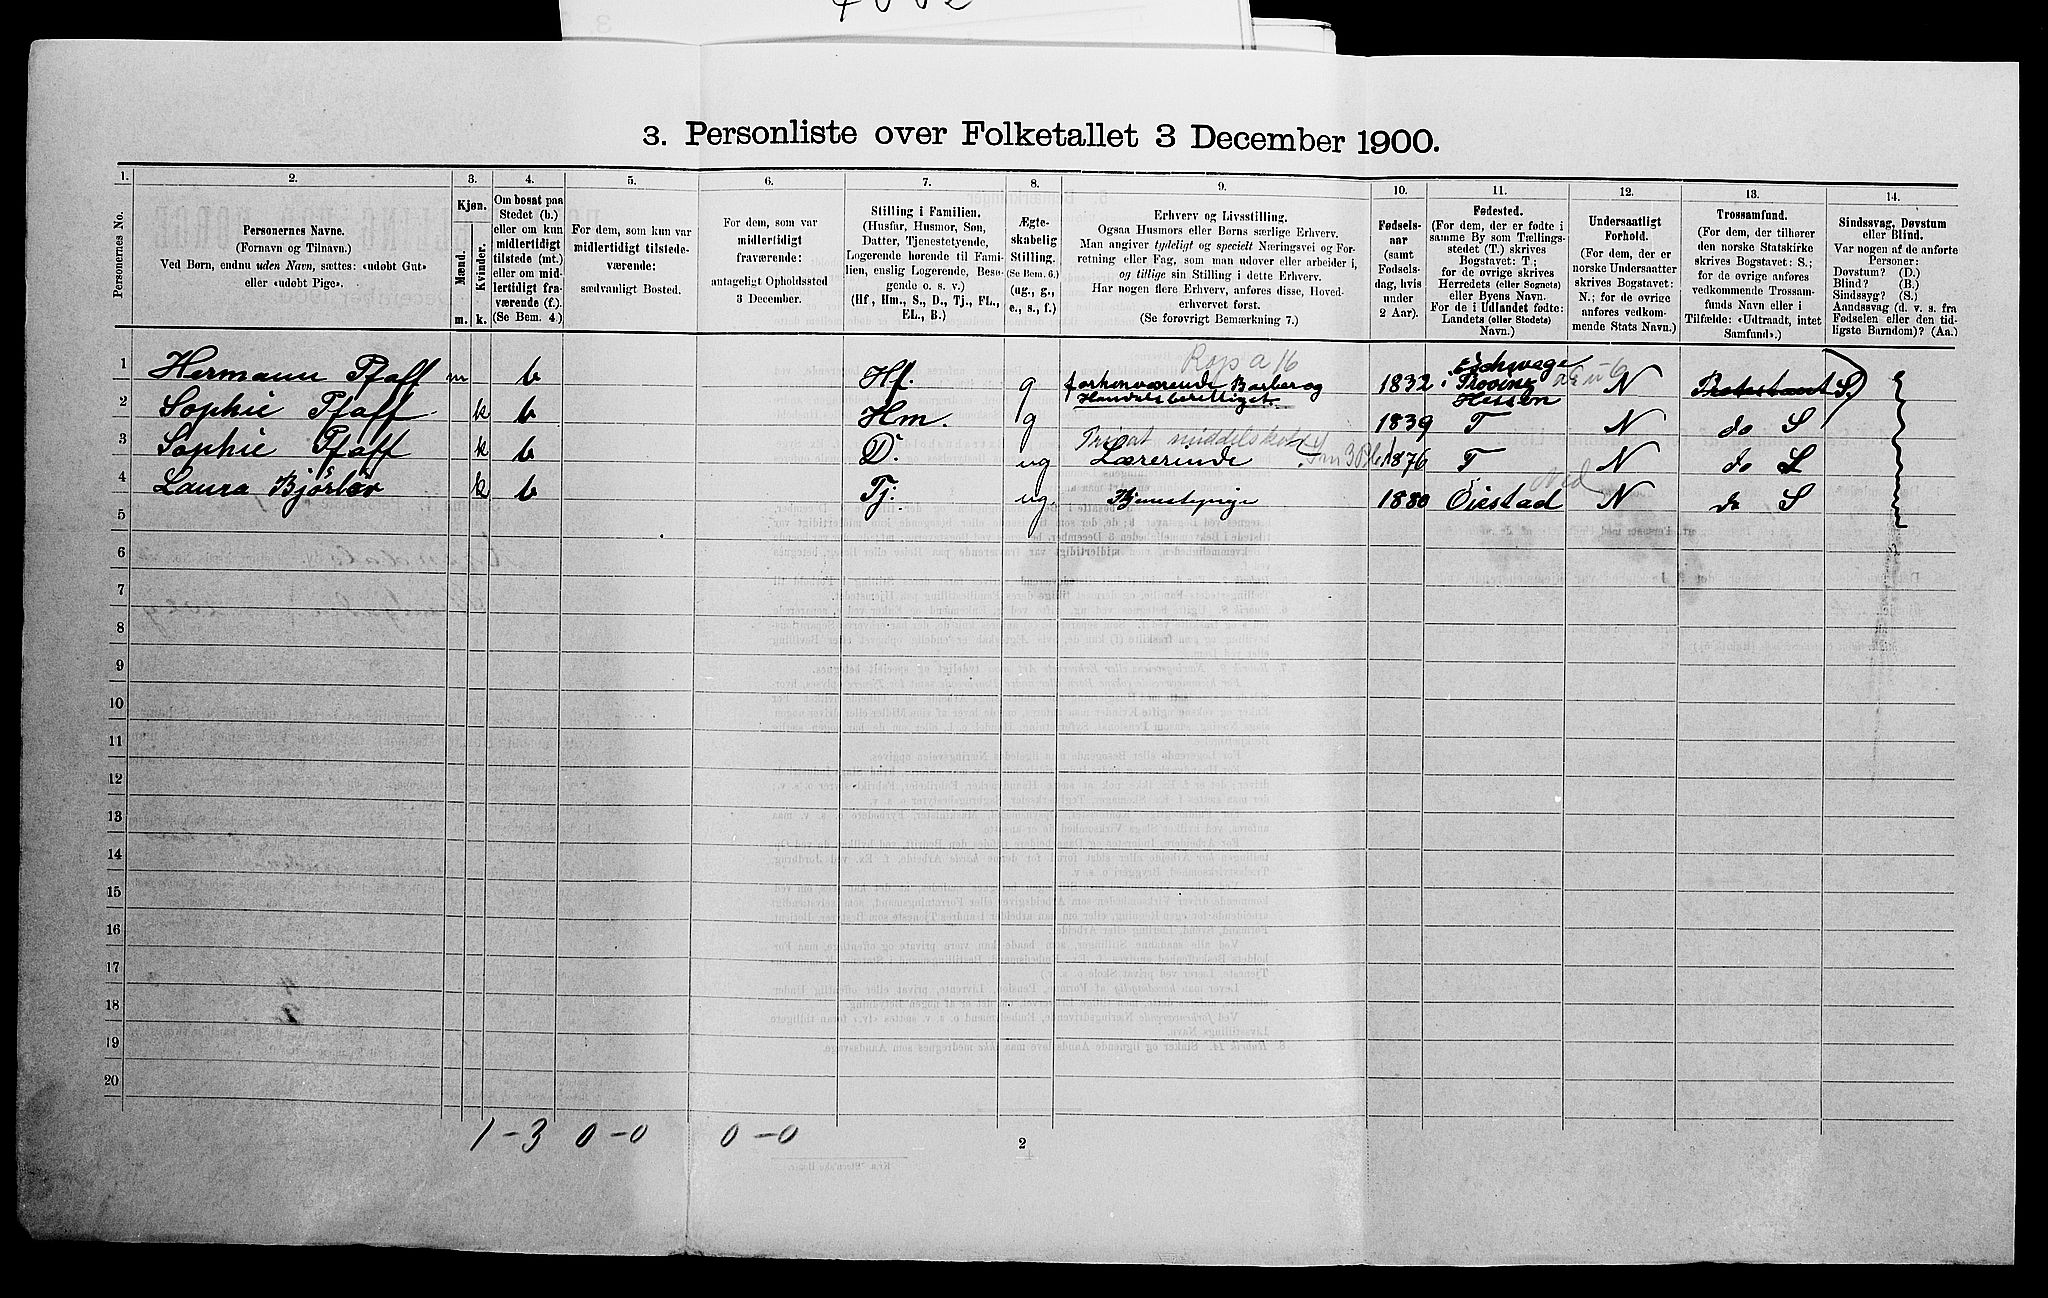 3. Personliste over Folketallet 3 December 1900.
1. 2. 3. 4. 5. 6. 7. 8. 9. 10. 11. 12. 13. 14.
Personernes No.
Personernes Navne.
(Fornavn og Tilnavn.)
Ved Børn, endnu uden Navn, sættes: «udøbt Gut»
eller «udøbt Pige».
Kjøn.
Mænd.
Kvinder.
m. k.
Om bosat paa
Stedet (b.)
eller om kun
midlertidigt
tilstede (mt.)
eller om mid-
lertidigt fra-
værende (f.)
(Se Bem. 4.)
For dem, som kun var
midlertidigt tilstede-
værende:
sædvanligt Bosted.
For dem, som var
midlertidigt
fraværende:
antageligt Opholdssted
3 December.
Stilling i Familien.
(Husfar, Husmor, Søn,
Datter, Tjenestetyende,
Logerende hørende til Fami-
lien, enslig Logerende, Besø-
gende o. s. v.)
(Hf., Hm., S., D., Tj., FL.,
EL., B.)
Ægte-
skabelig
Stilling.
(Se Bem. 6.)
(ug., g.,
e., s., f.)
Erhverv og Livsstilling.
Ogsaa Husmors eller Børns særlige Erhverv.
Man angiver tydeligt og specielt Næringsvei og For-
retning eller Fag, som man udover eller arbeider i,
og tillige sin Stilling i dette Erhverv.
Har nogen flere Erhverv, anføres disse, Hoved-
erhvervet først.
(Se forøvrigt Bemærkning 7.)
Fødsels-
aar
(samt
Fødsels-
dag, hvis
under
2 Aar).
Fødested.
(For dem, der er fødte i
samme By som Tællings-
stedet (T.) skrives
Bogstavet: T.;
for de øvrige skrives
Herredets (eller Sognets)
eller Byens Navn.
For de i Udlandet fødte:
Landets (eller Stedets)
Navn.)
Undersaatligt
Forhold.
(For dem, der er
norske Undersaatter
skrives Bogstavet:
N.; for de øvrige
anføres vedkom-
mende Stats Navn.)
Trossamfund.
(For dem, der tilhører
den norske Statskirke
skrives Bogstavet: S.;
for de øvrige anføres
vedkommende Trossam-
funds Navn eller i
Tilfælde: «Udtraadt, intet
Samfund».)
Sindssvag, Døvstum
eller Blind.
Var nogen af de anførte
Personer:
Døvstum? (D.)
Blind? (B.)
Sindssyg? (S.)
Aandssvag (d. v. s. fra
Fødselen eller den tid-
ligste Barndom)? (Aa.)
1 Hermann Pfaff m b Hf. g forhenværende Barber og Handelsberettiget. 1832 i Eschwege Provinz Hessen N Protestant S.
2 Sophie Pfaff k b Hm. g 1839 T N do S
3 Sophie Pfaff k b D. ug Privat middelskole Lærerinde 1876 T N do S
4 Laura Bjørlev k b Tj. ug Tjenestepige 1880 Øiestad N do S
5
6
7
8
9
10
11
12
13
14
15
16
17
18
19
20
1-3 0-0 0-0
2